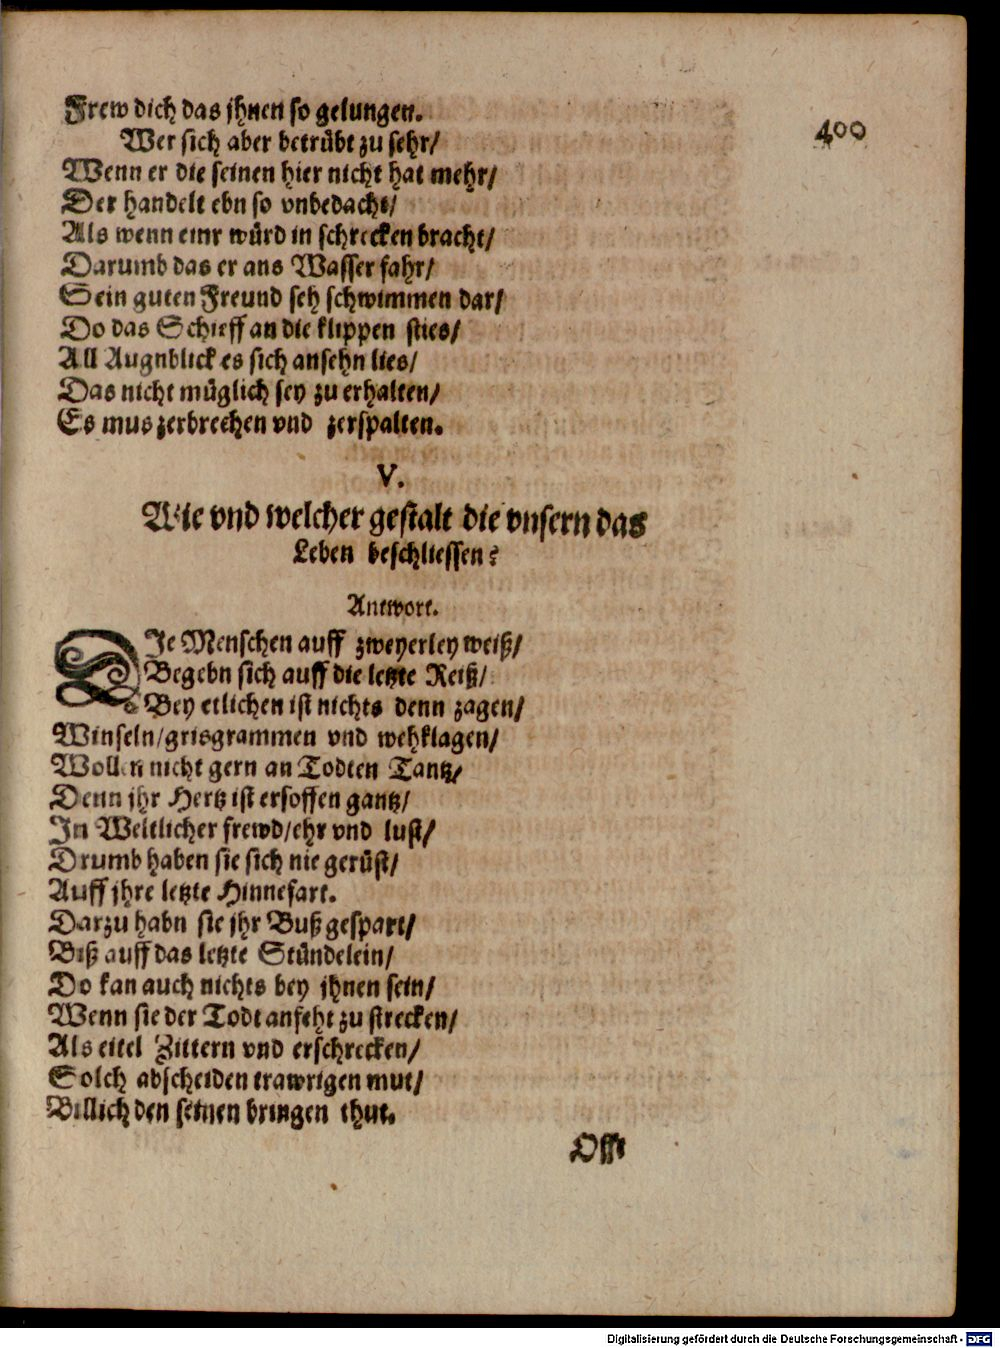 Frew dich das jhnen so gelungen.
400
Wer sich aber betrübt zu sehr/
Wenn er die seinen hier nicht hat mehr/
Der handelt ebn so vnbedacht/
Als wenn einr würd in schrecken bracht/
Darumb das er ans Wasser fahr/
Sein guten Freund seh schwimmen dar/
Do das Schieff an die klippen sties/
All Augnblick es sich ansehn lies/
Das nicht müglich sey zu erhalten/
Es mus zerbrechen vnd zerspalten.
V.
Wie vnd welcher gestalt die vnsern das
Leben beschliessen?
Antwort.
DIe Menschen auff zweyerley weiß/
Begebn sich auff die letzte Reiß/
Bey etlichen ist nichts denn zagen/
Winseln/grisgrammen vnd wehklagen/
Wollen nicht gern an Todten Tantz/
Denn jhr Hertz ist ersoffen gantz/
In Weltlicher frewd/ehr vnd lust/
Drumb haben sie sich nie gerüst/
Auff jhre letzte Hinnefart.
Darzu habn sie jhr Buß gespart/
Biß auff das letzte Stündelein/
Do kan auch nichts bey jhnen sein/
Wenn sie der Todt anfeht zu strecken/
Als eitel Zittern vnd erschrecken/
Solch abscheiden trawrigen mut/
Billich den seinen bringen thut.
Offt
Digitalisierung gefördert durch die Deutsche Forschungsgemeinschaft - DFG